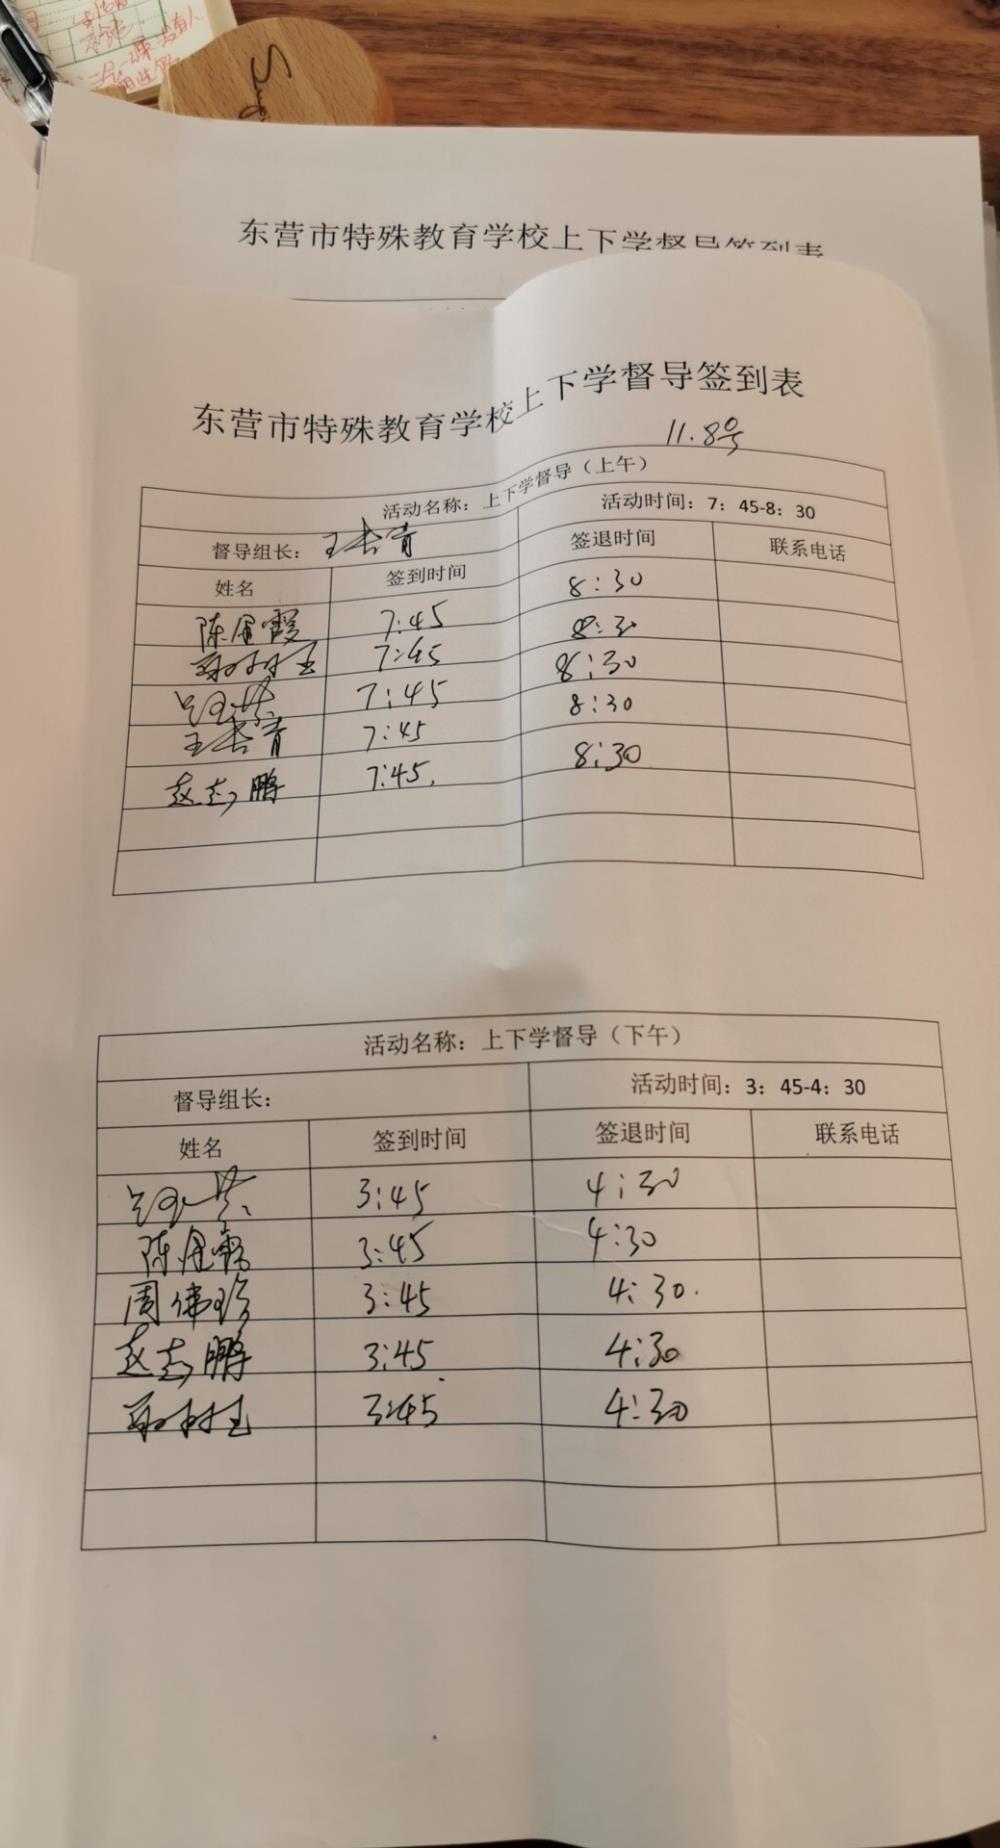 东营市特殊教育学校上下学督导签到表
东营市特殊教育学校上下学督导签到表
11.8号
活动名称：上下学督导（上午）
督导组长：王书青 活动时间：7：45-8：30
姓名 签到时间 签退时间 联系电话
陈 霞 7:45 8:30
7:45 8:30
7:45 8:30
王书青 7:45 8:30
赵志鹏 7:45. 8:30
活动名称：上下学督导（下午）
督导组长： 活动时间：3：45-4：30
姓名 签到时间 签退时间 联系电话
3:45 4:30
陈 霞 3:45 4:30
周伟珍 3:45 4:30.
赵志鹏 3:45 4:30
3:45 4:30